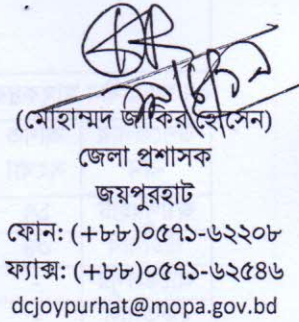 (মোহাম্মদ জাকির হোসেন)
জেলা প্রশাসক
জয়পুরহাট
ফোন: (+৮৮)০৫৭১-৬২২০৮
ফ্যাক্স: (+৮৮)০৫৭১-৬২৫৪৬
dcjoypurhat@mopa.gov.bd